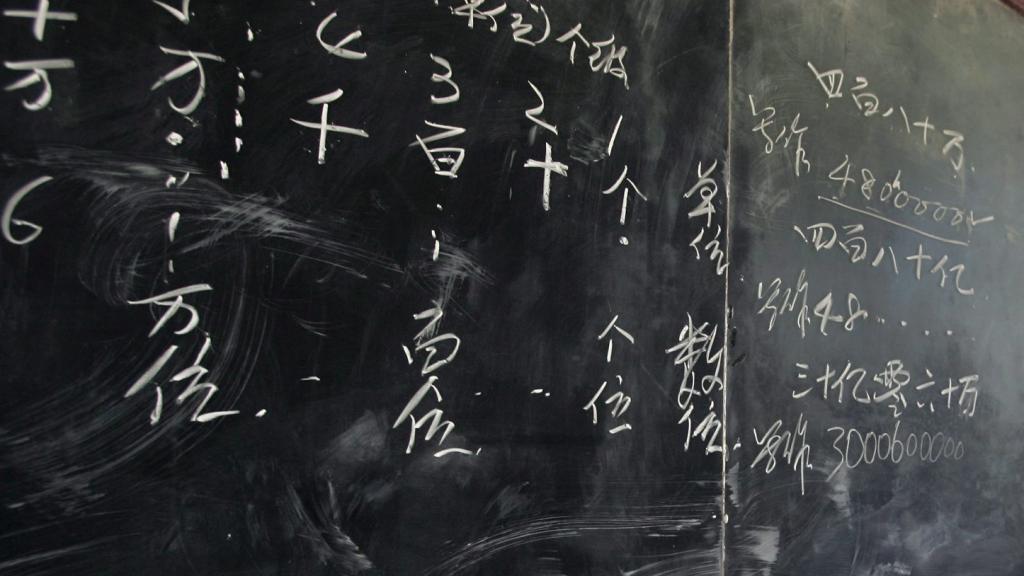 个级
十万 6
万 万位
千
3百 百位
2十
1个 个位
单位 数位
四百八十万
写作
四百八十亿
写作 48.....
三十亿零六十万
写作 3000600000